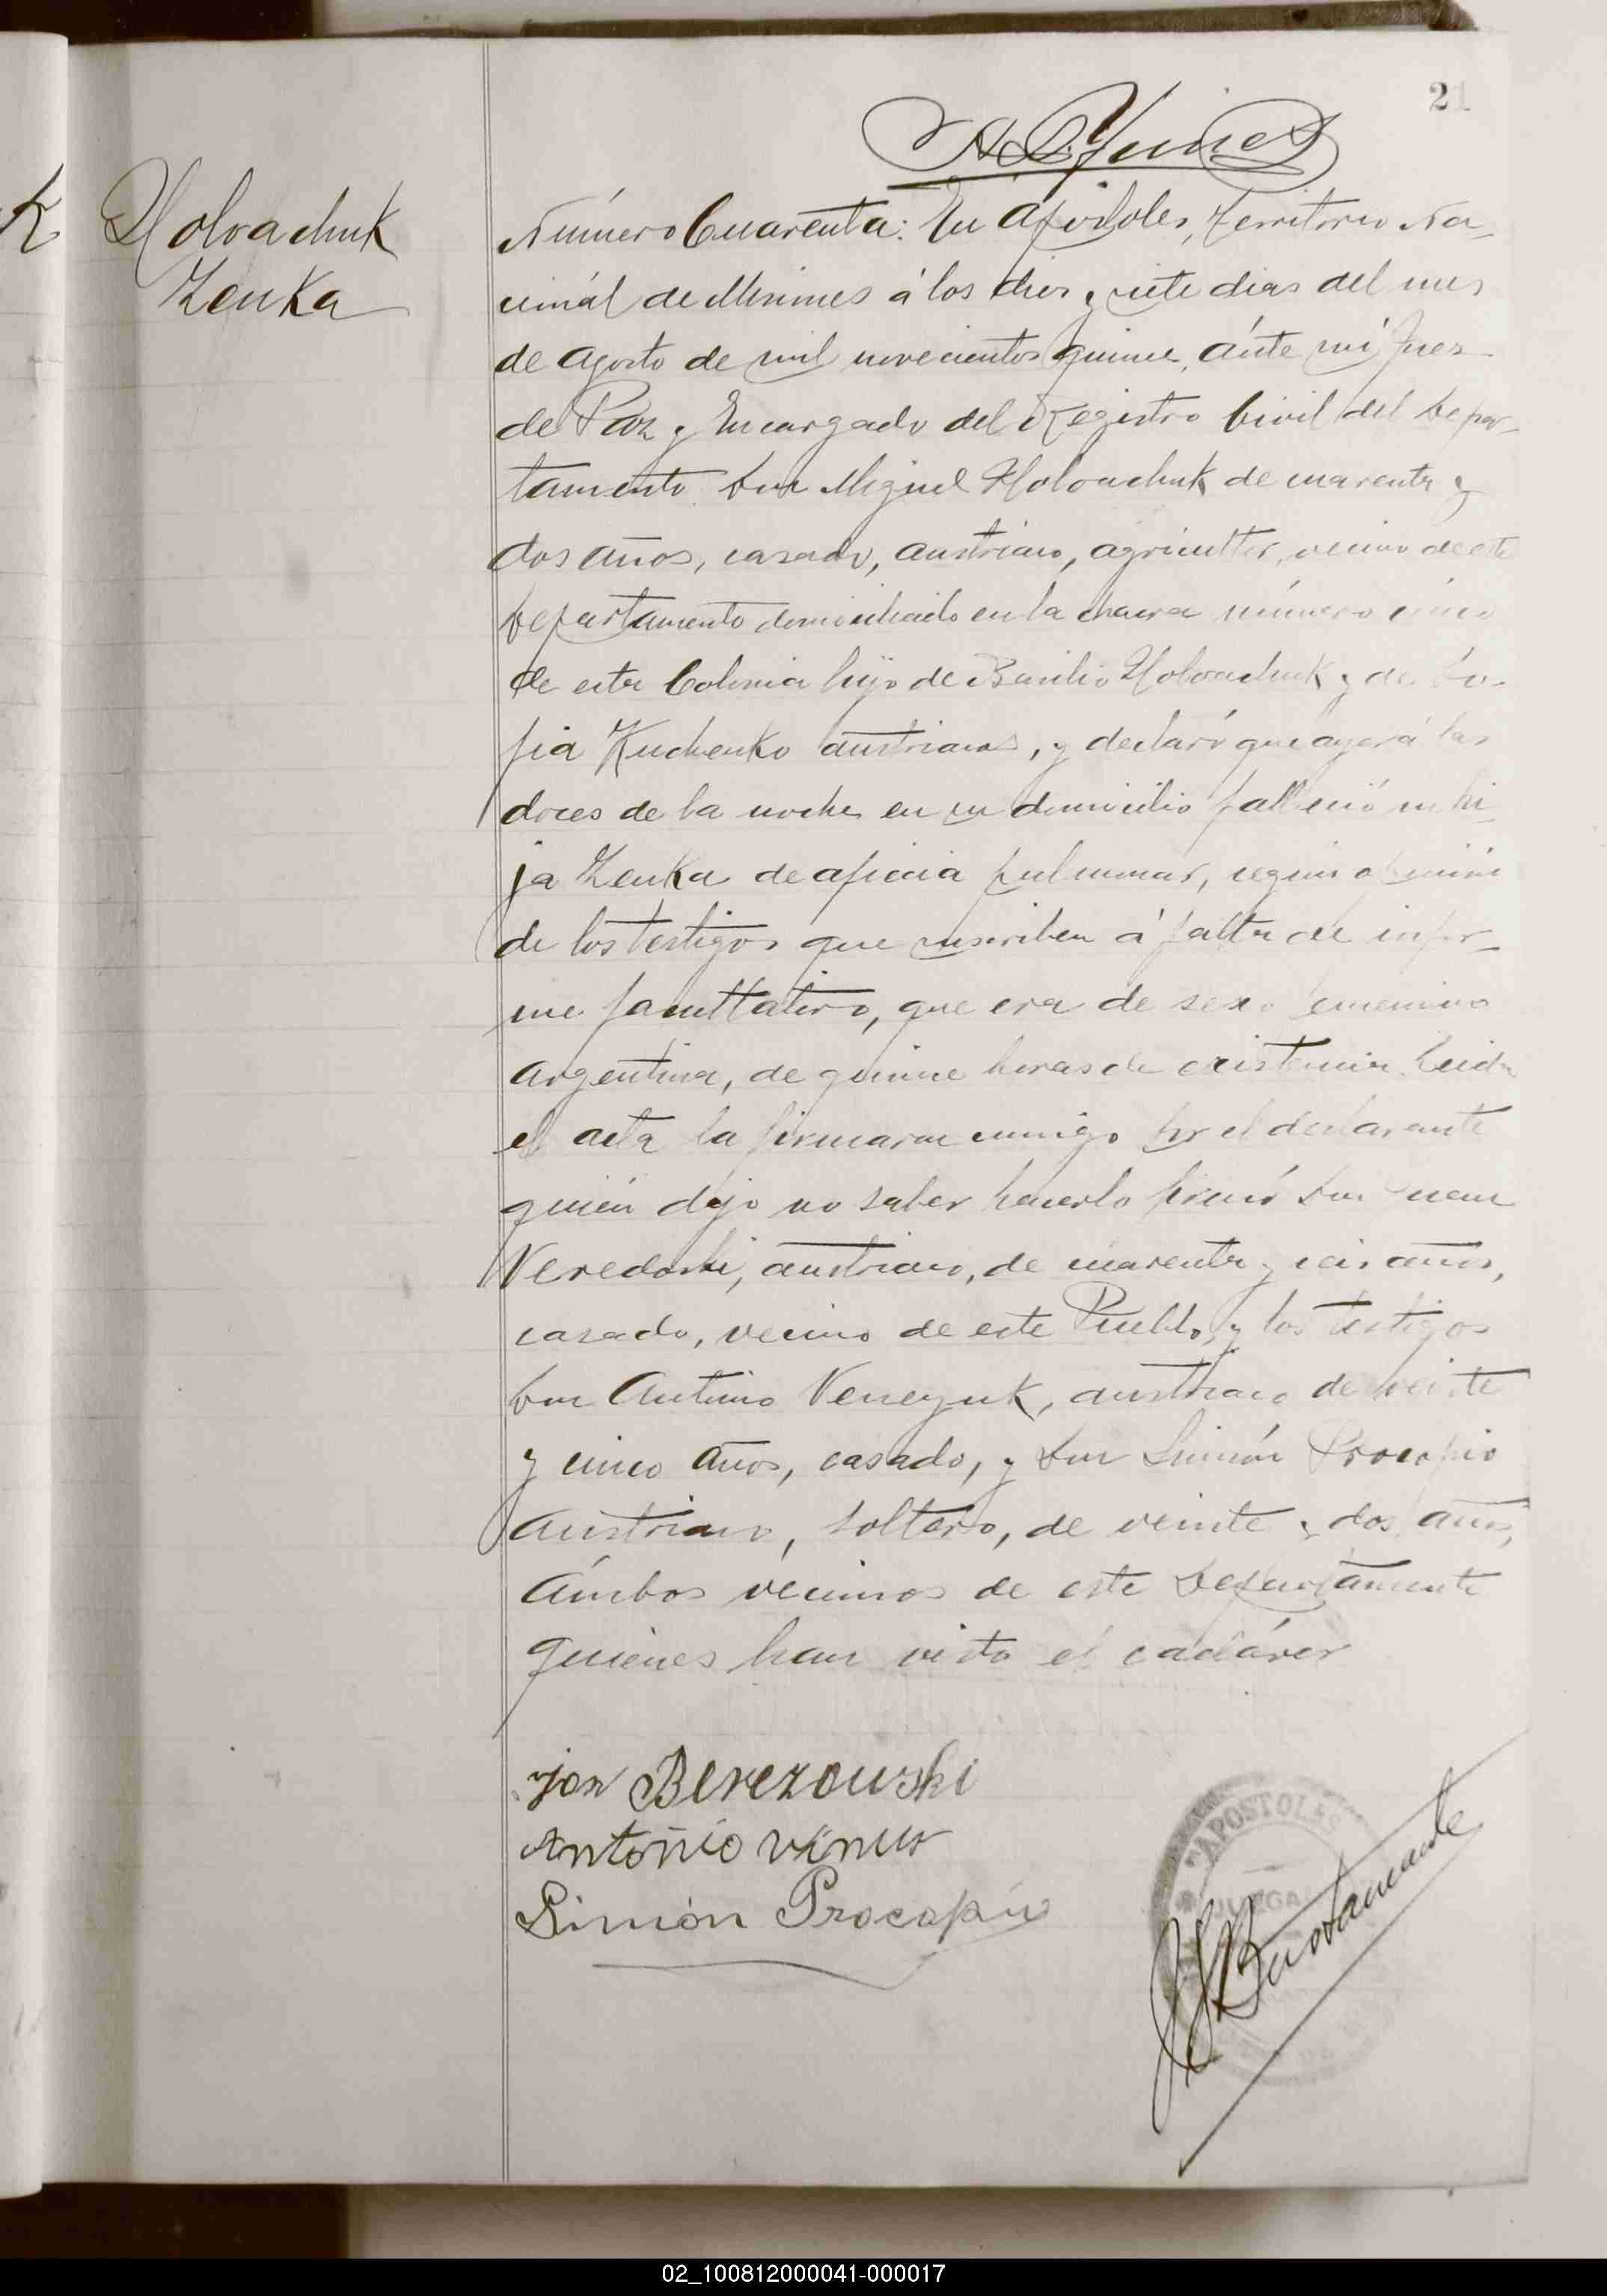 21
Holvachuk
Zenka
Número Cuarenta: En Apóstoles, Territorio Na-
cionál de Misiones á los dies y siete dias del mes
de Agosto de mil novecientos quince, ánte mi Juez
de Paz y Encargado del Registro Civil del Depar-
tamento. Don Miguel Holovachuk de cuarenta y
dos años, casado, austriaco, agricultor, vecino de este
Departamento domiciliado en la chacra número cinco
de esta Colonia hijo de Basilio Holovachuk y de So-
fia Kuchenko austriacos, y declaró que ayer á las
doces de la noche en su domicilio falleció su hi-
ja Zenka de aficcia pulmonar, segun opinión
de los testigos que suscriben á falta del infor-
me facultativo, que era de sexo femenino
Argentina, de quince horas de existencia. Leida
el acta la firmaron conmigo por el declarante
quién dijo no saber hacerlo firmó Don Juan
Veredoski, austriaco, de cuarenta y seis años,
casado, vecino de este Pueblo, y los testigos
Don Antonio Veneyuk, austriaco de veinte
y cinco años, casado, y Don Simón Procopio
Austriaco, soltero, de veinte y dos años,
Ámbos vecinos de este Departamento
quiénes han visto el cadáver
Jan Berezowski
Antonio
Simón Procopio
APOSTOLES
JUZGA
Bustamante
02_100812000041-000017